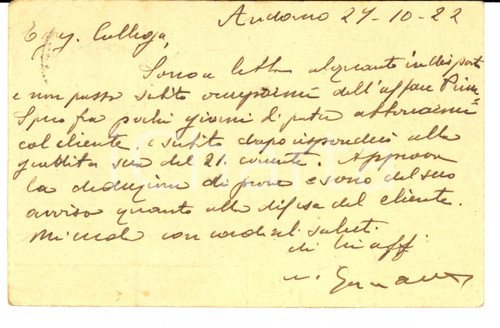 Andorno 27-10-22
Egr. Collega,
Sono a letto alquanto indisposto
e non posso subito occuparmi dell'affare
Spero fra pochi giorni di poter abboccarmi
col cliente e subito dopo risponderò alla
gradita sua del 21 corrente. Approvo
la deduzione di prove e sono del suo
avviso quanto alla difesa del cliente.
Mi creda con cordiali saluti.
di Lei aff.